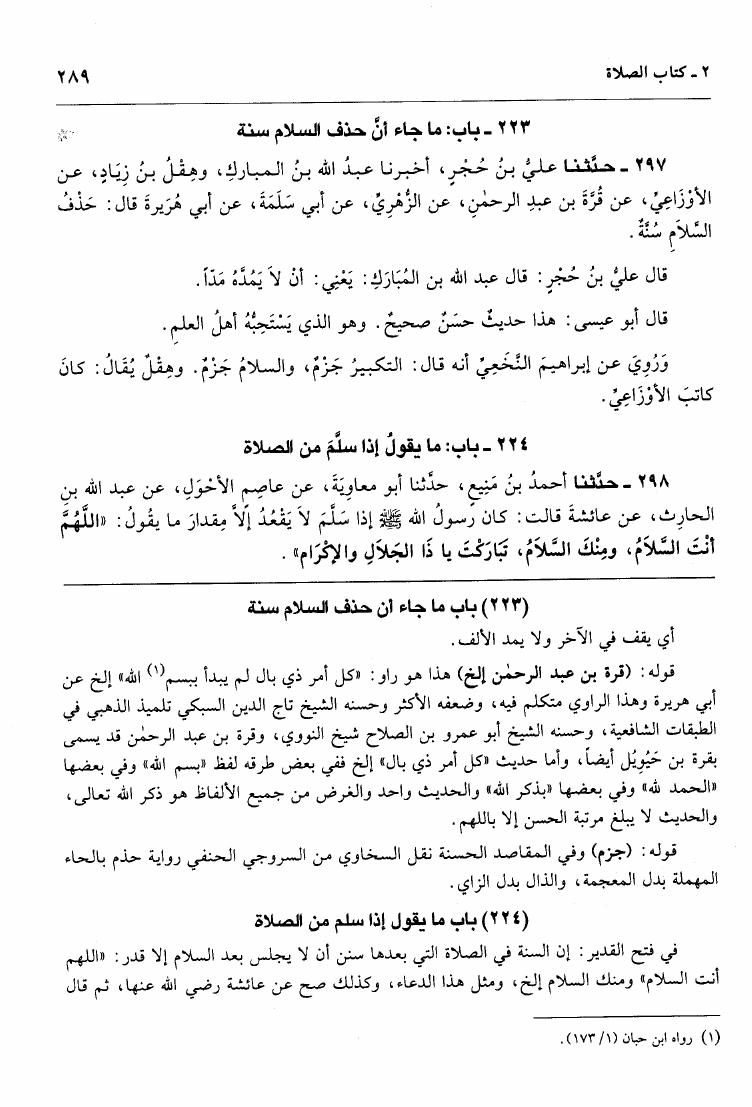 ٢ ـ كتاب الصلاة
٢٨٩
٢٢٣ ـ باب: ما جاء أنَّ حذف السلام سنة
٢٩٧ ـ حدَّثنا عليُّ بنُ حُجْرٍ، أخبرنا عبدُ الله بنُ المباركِ، وهِقْلُ بنُ زِيَادٍ، عن
الأوْزَاعِيِّ، عن قُرَّةَ بن عبدِ الرحمٰنِ، عن الزُّهْرِيِّ، عن أبي سَلَمَةَ، عن أبي هُرَيرةَ قال: حَذْفُ
السَّلاَمِ سُنَّةٌ.
قال عليُّ بنُ حُجْرٍ: قال عبد الله بن المُبَارَكِ: يَعْنِي: أنْ لاَ يَمُدَّهُ مَدّاً.
قال أبو عيسى: هذا حديثٌ حسَنٌ صحيحٌ. وهو الذي يَسْتَحِبُّهُ أهلُ العلمِ.
وَرُوِيَ عن إبراهيمَ النَّخَعِيِّ أنه قال: التكبيرُ جَزْمٌ، والسلامُ جَزْمٌ. وهِقْلٌ يُقَالُ: كانَ
كاتبَ الأوْزَاعِيِّ.
٢٢٤ ـ باب: ما يقولُ إذا سلَّمَ من الصلاة
٢٩٨ ـ حدَّثنا أحمدُ بنُ مَنِيعٍ، حدَّثنا أبو معاويَةَ، عن عاصِمٍ الأحْوَلِ، عن عبد الله بنِ
الحارِث، عن عائشةَ قالت: كان رسولُ الله ﷺ إذا سَلَّمَ لاَ يَقْعُدُ إلاَّ مِقدارَ ما يقُولُ: «اللَّهُمَّ
أنْتَ السَّلاَمُ، ومِنْكَ السَّلاَمُ، تَبَارَكْتَ يا ذَا الجَلاَلِ والإكْرَام».
(٢٢٣) باب ما جاء أن حذف السلام سنة
أي يقف في الآخر ولا يمد الألف.
قوله: (قرة بن عبد الرحمٰن إلخ) هذا هو راو: «كل أمر ذي بال لم يبدأ ببسم(١) الله» إلخ عن
أبي هريرة وهذا الراوي متكلم فيه، وضعفه الأكثر وحسنه الشيخ تاج الدين السبكي تلميذ الذهبي في
الطبقات الشافعية، وحسنه الشيخ أبو عمرو بن الصلاح شيخ النووي، وقرة بن عبد الرحمٰن قد يسمى
بقرة بن حَيُوِيُل أيضاً، وأما حديث «كل أمر ذي بال» إلخ ففي بعض طرقه لفظ «بسم الله» وفي بعضها
«الحمد لله» وفي بعضها «بذكر الله» والحديث واحد والغرض من جميع الألفاظ هو ذكر الله تعالى،
والحديث لا يبلغ مرتبة الحسن إلا باللهم.
قوله: (جزم) وفي المقاصد الحسنة نقل السخاوي من السروجي الحنفي رواية حذم بالحاء
المهملة بدل المعجمة، والذال بدل الزاي.
(٢٢٤) باب ما يقول إذا سلم من الصلاة
في فتح القدير: إن السنة في الصلاة التي بعدها سنن أن لا يجلس بعد السلام إلا قدر: «اللهم
أنت السلام» ومنك السلام إلخ، ومثل هذا الدعاء، وكذلك صح عن عائشة رضي الله عنها، ثم قال
(١) رواه ابن حبان (١/ ١٧٣).